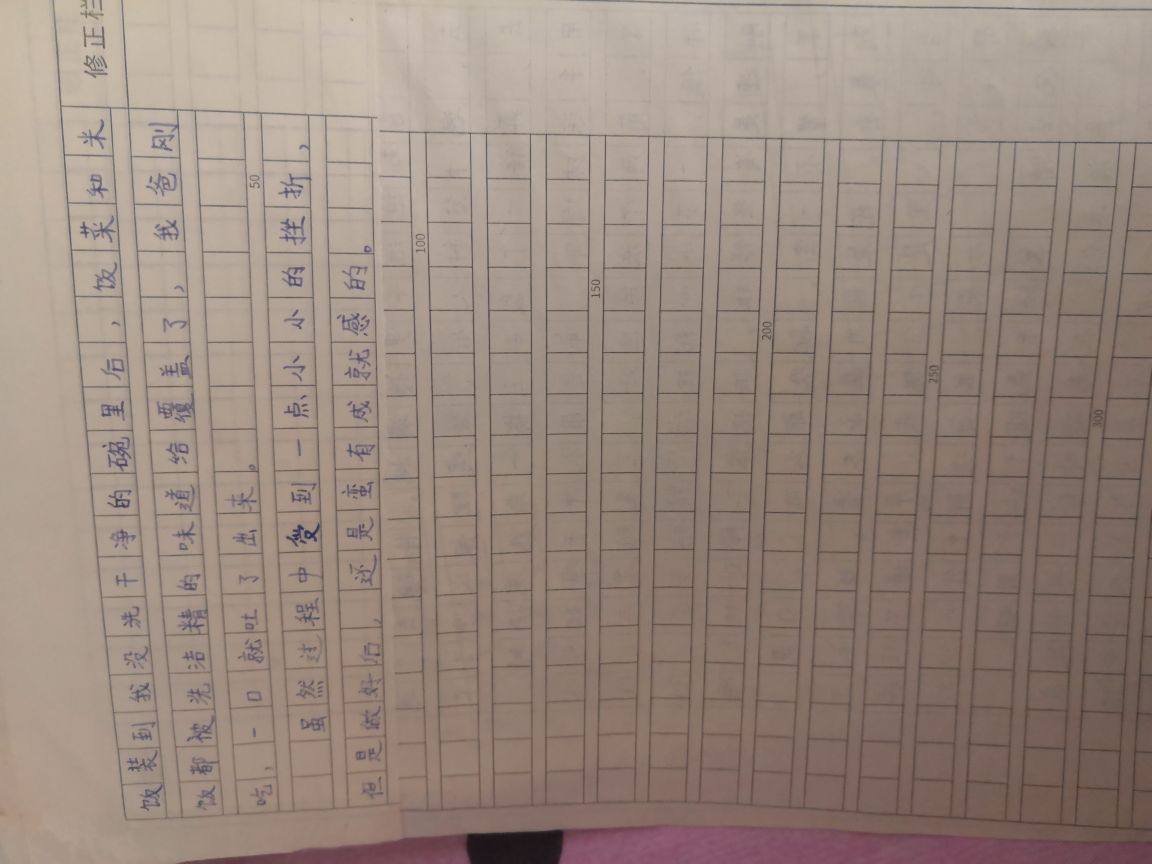 修正栏
饭装到我没洗干净的碗里后，饭菜和米
饭都被洗洁精的味道给覆盖了，我爸刚
吃，一口就吐了出来。
50
虽然过程中受到一点小小的挫折，
但是做好后，还是蛮有成就感的。
100
150
200
250
300